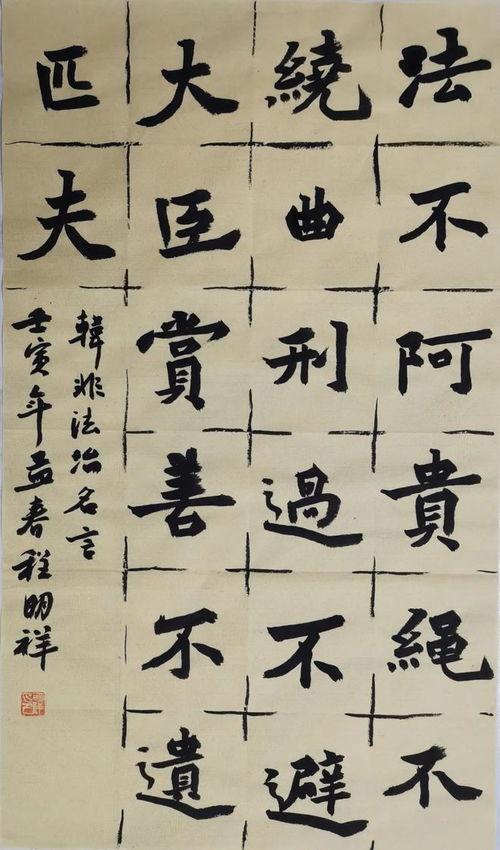 法不阿貴繩不
繞曲刑過不避
大臣賞善不遺
匹夫
韓非法治名言
壬寅年孟春程明祥